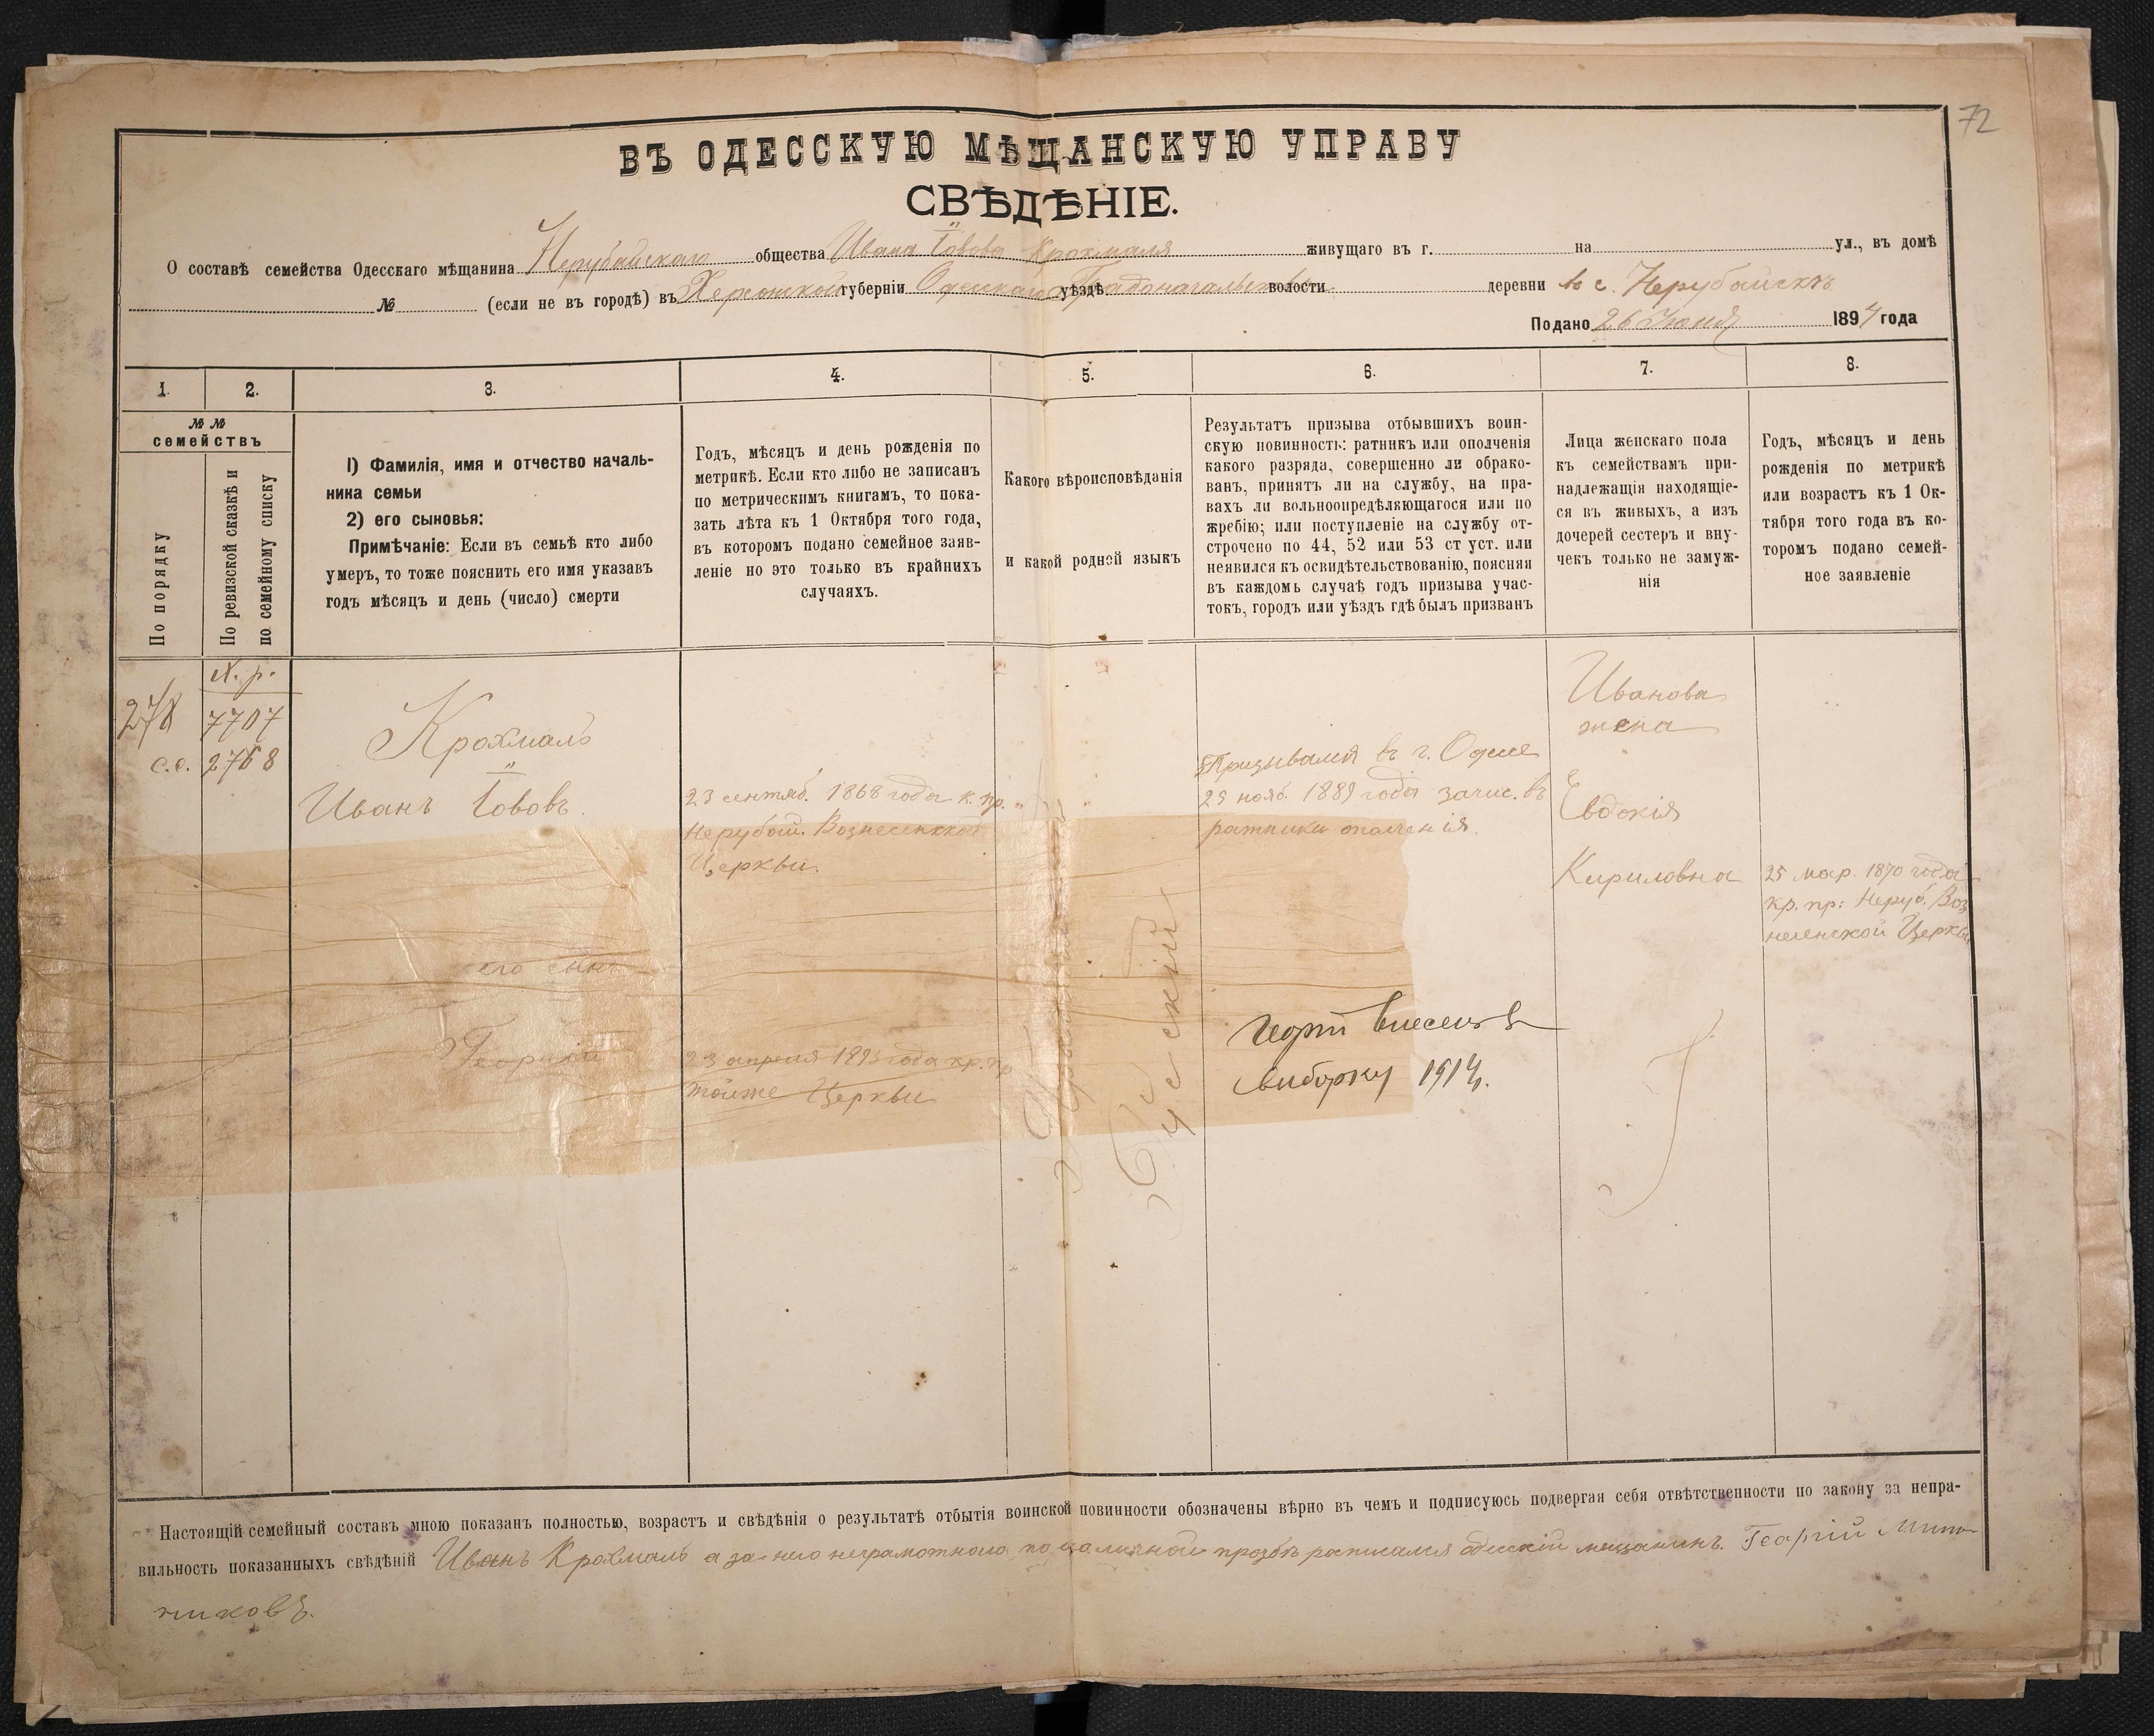 72
ВЪ ОДЕССКУЮ МѢЩАНСКУЮ УПРАВУ
СВѢДѢНІЕ.
О составѣ семейства Одесскаго мѣщанина Нерубайскаго общества Ивана Іовова Крохмаля живущаго въ г. на ул., въ домѣ
№ (если не въ городѣ) въ Херсонской губерніи Одесскаго уѣздѣ Градоначальства волости деревни в с. Нерубайскѣ
Подано 26 Іюня 1894 года
1. 2. 3. 4. 5. 6. 7. 8.
№ №
семействъ
По порядку
По ревизской сказкѣ и
по семейному списку
1) Фамилія, имя и отчество началь-
ника семьи
2) его сыновья:
Примѣчаніе: Если въ семьѣ кто либо
умеръ, то тоже пояснить его имя указавъ
годъ мѣсяцъ и день (число) смерти
Годъ, мѣсяцъ и день рожденія по
метрикѣ. Если кто либо не записанъ
по метрическимъ книгамъ, то пока-
зать лѣта къ 1 Октября того года,
въ которомъ подано семейное заяв-
леніе но это только въ крайнихъ
случаяхъ.
Какого вѣроисповѣданія
и какой родной языкъ
Результатъ призыва отбывшихъ воин-
скую повинность: ратникъ или ополченія
какого разряда, совершенно ли обрако-
ванъ, принятъ ли на службу, на пра-
вахъ ли вольноопредѣляющагося или по
жребію; или поступленіе на службу от-
строчено по 44, 52 или 53 ст уст. или
неявился къ освидѣтельствованію, поясняя
въ каждомъ случаѣ годъ призыва учас-
токъ, городъ или уѣздъ гдѣ былъ призванъ
Лица женскаго пола
къ семействамъ при-
надлежащія находящіе-
ся въ живыхъ, а изъ
дочерей сестеръ и вну-
чекъ только не замуж-
нія
Годъ, мѣсяцъ и день
рожденія по метрикѣ
или возрастъ къ 1 Ок-
тября того года въ ко-
торомъ подано семей-
ное заявленіе
278
с.с.
Н. р.
7707
2768
Крохмаль
Иванъ Іововъ.
его сынъ
Георгій
23 сентяб. 1868 года к. пр.
Неруbай. Вознесенской
Церкви.
23 апреля 1893 года кр. пр
тойже Церкви
Русскій
Призывался въ г. Одесе
25 нояб. 1889 года зачис. въ
ратники ополченія.
Георгій внесенъ в
выборку 1914.
Иванова
жена
Евдокія
Кириловна
25 мар. 1870 года
кр. пр: Неруб. Воз
несенской Церкви
Настоящій семейный составъ мною показанъ полностью, возрастъ и свѣдѣнія о результатѣ отбытія воинской повинности обозначены вѣрно въ чемъ и подписуюсь подвергая себя отвѣтственности по закону за непра-
вильность показанныхъ свѣдѣній Иванъ Крохмаль а за него неграмотного по его личной прозбѣ росписался одесскій мещанинъ. Георгій